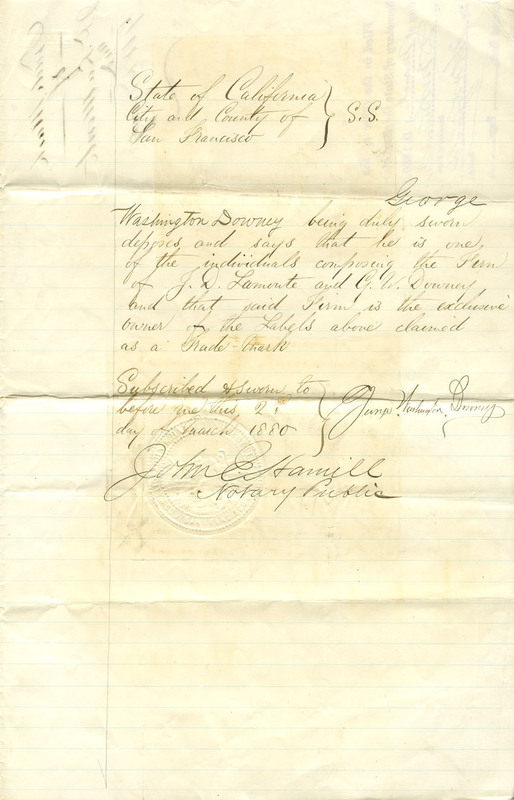 State of California
City and County of } S.S.
San Francisco
George
Washington Downey being duly sworn
deposes and says that he is one
of the individuals composing the Firm
of J. D. Lamonte and G. W. Downey
and that said Firm is the exclusive
owner of the Labels above claimed
as a Trade-Mark
Subscribed & Sworn to
before me this 2
day of March 1880
Washington Downey
John E Hamill
Notary Public